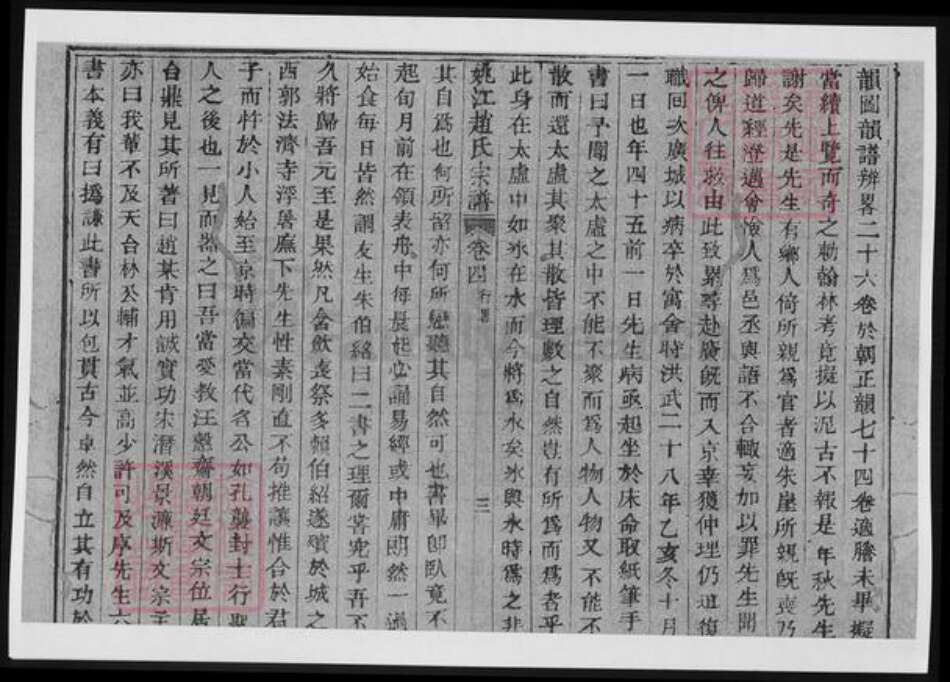 韻圖韻譜辨畧二十六卷於朝正韻七十四卷適謄未畢擬
當續上覽而奇之勅翰林考竟擬以泥古不報是年秋先生
謝矣先是先生有鄉人倚所親為官者適朱崖所親旣喪乃
歸道經澄邁會渝人為邑丞與語不合輙妄加以罪先生聞
之俾人往救由此致累尋赴廣旣而入京幸獲仲理仍道復
職回次廣城以病卒於寓舍時洪武二十八年乙亥冬十月
一日也年四十五前一日先生病亟起坐於床命取紙筆手
書曰予聞之太虛之中不能不聚而為人物人物又不能不
散而還太虛其聚其散皆理數之自然豈有所為而為者乎
此身在太虛中如氷在水而今將為水矣氷與水時為之非
姚江趙氏宗譜 卷四 行畧 三
其自為也何所留亦何所戀聽其自然可也書畢卽臥竟不
起旬月前在領表舟中每晨起必誦易經或中庸朗然一過
始食每日皆然謂友生朱伯紹曰二書之理爾嘗究乎吾不
久將歸吾元至是果然凡含斂喪祭多賴伯紹遂殯於城之
西郭法濟寺浮暑廡下先生性素剛直不苟推讓惟合於君
子而忤於小人始至京時徧交當代名公如孔襲封士行聖
人之後也一見而器之曰吾當愛教汪慤齋朝廷文宗位居
台鼎見其所著曰趙某肯用誠實功宋潛溪景濂斯文宗主
亦曰我輩不及天台林公輔才氣並高少許可及序先生六
書本義有曰撝謙此書所以包貫古今卓然自立其有功於